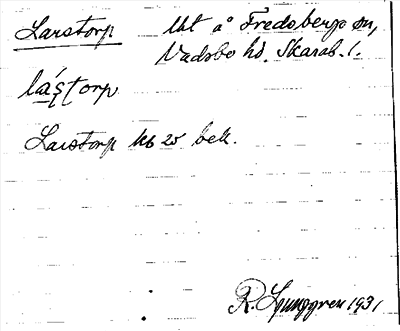 Larstorp lht å Fredsbergs sn,
Vadsbo hd. Skarab. l.
lástorp
Larstorp kb 20 bek.
R. Ljunggren 1931